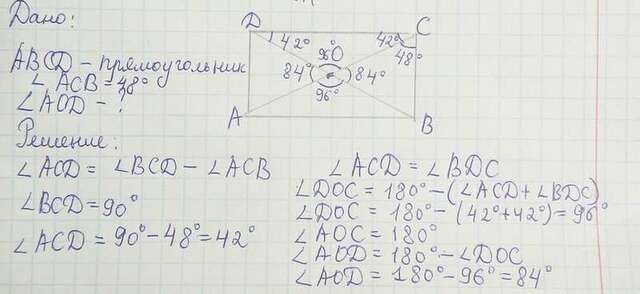 Дано:
ABCD – прямоугольник
∠ ACB = 48°
∠ AOD – ?
D
C
42°
42°
48°
96°
O
84°
84°
96°
A
B
Решение:
∠ ACD = ∠BCD – ∠ACB
∠BCD = 90°
∠ ACD = 90° – 48° = 42°
∠ ACD = ∠ BDC
∠DOC = 180° – (∠ACD + ∠BDC)
∠DOC = 180° – (42° + 42°) = 96°
∠AOC = 180°
∠AOD = 180° – ∠DOC
∠AOD = 180° – 96° = 84°